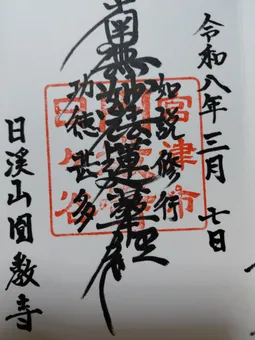 令和八年三月七日
如説修行
南無妙法蓮華経
功徳甚多
日渓山圓教寺